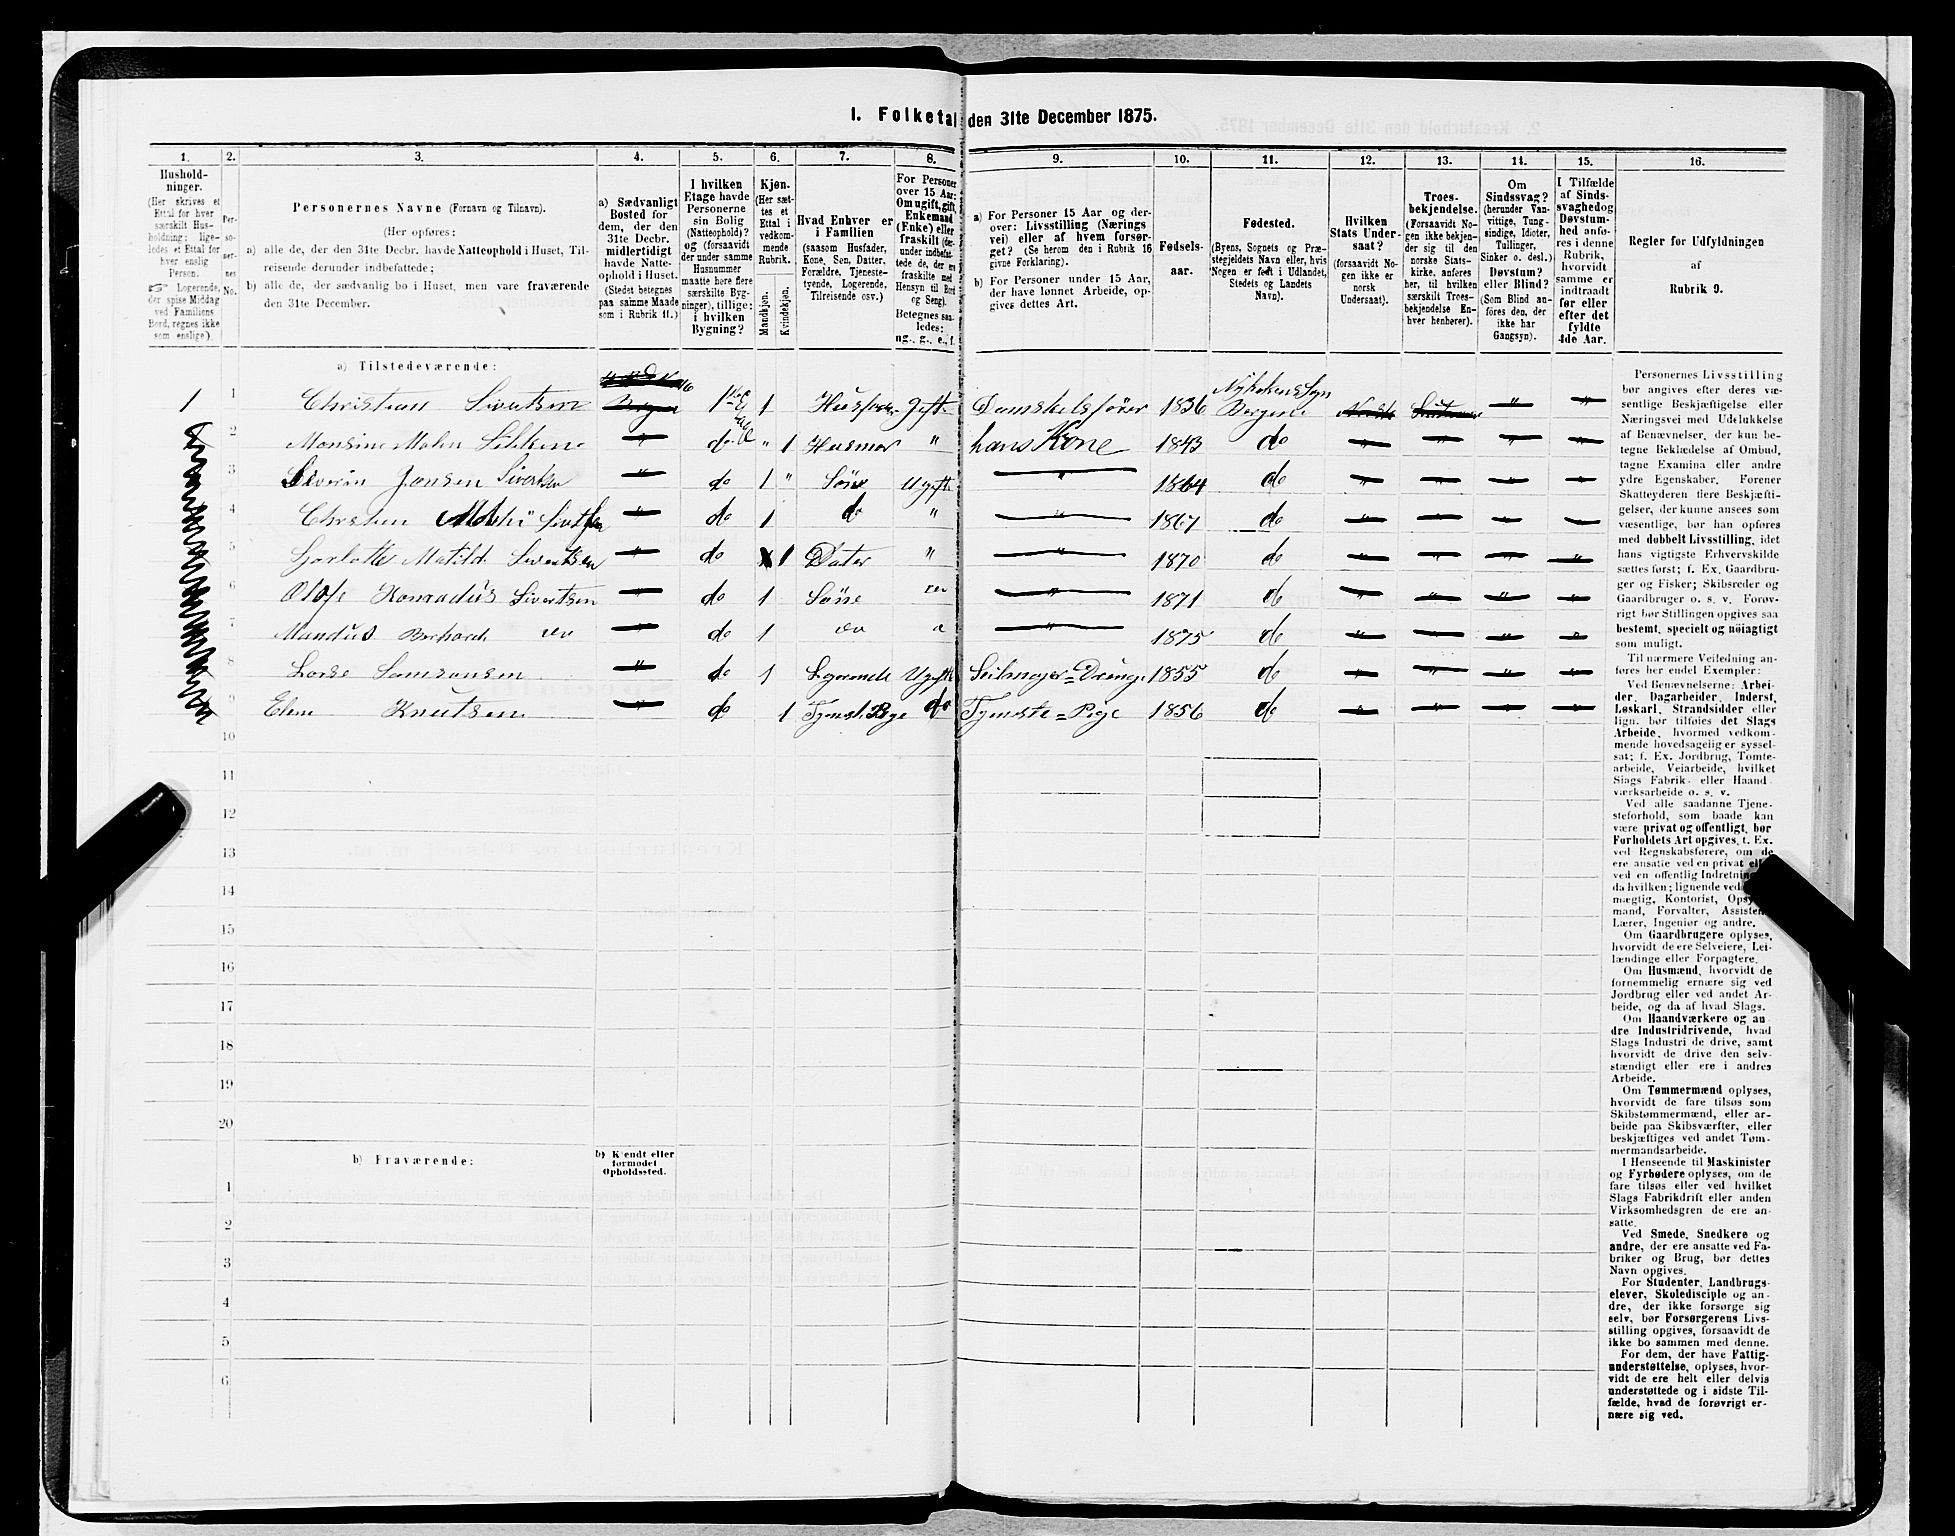 1. Folketal den 31te December 1875.
1. 2. 3. 4. 5. 6. 7. 8. 9. 10. 11. 12. 13. 14. 15. 16.
Hushold-
ninger.
(Her skrives et
Ettal for hver
særskilt Hus-
holdning; lige-
ledes et Ettal for
hver enslig
Person.
Logerende,
der spise Middag
ved Familiens
Bord, regnes ikke
som enslige).
Per-
so-
ner-
nes
No.
Personernes Navne (Fornavn og Tilnavn).
(Her opføres:
a) alle de, der den 31te Decbr. havde Natteophold i Huset, Til-
reisende derunder indbefattede;
b) alle de, der sædvanlig bo i Huset, men vare fraværende
den 31te December.
a) Sædvanligt
Bosted for
dem, der den
31te Decbr.
midlertidigt
havde Natte-
ophold i Huset.
(Stedet betegnes
paa samme Maade
som i Rubrik 11.)
I hvilken
Etage havde
Personerne
sin Bolig
(Natteophold)?
og (forsaavidt
der under samme
Husnummer
maatte høre flere
særskilte Byg-
ninger), tillige:
i hvilken
Bygning?
Kjøn.
(Her sæt-
tes et
Ettal i
vedkom-
mende
Rubrik.
Mandkjøn.
Kvindekjøn.
Hvad Enhver er
i Familien
(saasom Husfader,
Kone, Søn, Datter,
Forældre, Tjeneste-
tyende, Logerende,
Tilreisende osv.)
For Personer
over 15 Aar:
Om ugift, gift,
Enkemand
(Enke) eller
fraskilt (der-
under indbefat-
tede de, der ere
fraskilte med
Hensyn til Bord
og Seng).
Betegnes saa-
ledes:
ug., g., e., f.
a) For Personer 15 Aar og der-
over: Livsstilling (Nærings
vei) eller af hvem forsør-
get? (Se herom den i Rubrik 16
givne Forklaring).
b) For Personer under 15 Aar,
der have lønnet Arbeide, op-
gives dettes Art.
Fødsels-
aar.
Fødested.
(Byens, Sognets og Præ-
stegjeldets Navn eller, hvis
Nogen er født i Udlandet,
Stedets og Landets
Navn).
Hvilken
Stats Under-
saat?
(forsaavidt No-
gen ikke er
norsk
Undersaat).
Troes-
bekjendelse.
(Forsaavidt No-
gen ikke bekjen-
der sig til den
norske Stats-
kirke, anføres
her, til hvilken
særskilt Troes-
bekjendelse En-
hver henhører).
Om
Sindssvag?
(herunder Van-
vittige, Tung-
sindige, Idioter,
Tullinger,
Sinker o. desl.)
Døvstum?
eller Blind?
(Som Blind an-
föres den, der
ikke har
Gangsyn).
I Tilfælde
af Sinds-
svaghed og
Døvstum-
hed anfø-
res i denne
Rubrik,
hvorvidt
samme er
indtraadt
før eller
efter det
fyldte
4de Aar.
Regler for Udfyldningen
af
Rubrik 9.
a) Tilstedeværende:
1 1 Christian Sivertsen 1 Gift 1836 Bergen " "
2 " do " 1 Husmor " hans Kone 1843 do " " " "
3 " do 1 " Søn Ugift " 1864 do " " " "
4 " do 1 do " " 1867 do " " " "
5 Matild Sivertsen " do 1 Dater " " 1870 do " " " "
6 Konradus Sivertsen " do 1 Søn " 1871 do " " " "
7 " do 1 " 1875 do " " " "
8 Samsonsen " do 1 Ugift 1855 do " " " "
9 Knutsen " do 1 do Tjeneste=Pige 1856 do " " " "
10
11
12
13
14
15
16
17
18
19
20
b) Fraværende:
b) Kjendt eller
formodet
Opholdssted.
1
2
3
4
5
6
Personernes Livsstilling
bør angives efter deres væ-
sentlige Beskjæftigelse eller
Næringsvei med Udelukkelse
af Benævnelser, der kun be-
tegne Beklædelse af Ombud,
tagne Examina eller andre
ydre Egenskaber. Forener
Skatteyderen flere Beskjæfti-
gelser, der kunne ansees som
væsentlige, bør han opføres
med dobbelt Livsstilling, idet
hans vigtigste Erhvervskilde
sættes først; f. Ex. Gaardbru-
ger og Fisker; Skibsreder og
Gaardbruger o. s. v. Forøv-
rigt bør Stillingen opgives saa
bestemt, specielt og nöiagtigt
som muligt.
Til nærmere Veiledning an-
føres her endel Exempler:
Ved Benævnelserne: Arbei-
der, Dagarbeider, Inderst,
Løskarl, Strandsidder eller
lign. bør tilføies det Slags
Arbeide, hvormed vedkom-
mende hovedsagelig er syssel-
sat; f. Ex. Jordbrug, Tomte-
arbeide, Veiarbeide, hvilket
Slags Fabrik- eller Haand
værksarbeide o. s. v.
Ved alle saadanne Tjene-
steforhold, som baade kan
være privat og offentligt, bør
Forholdets Art opgives, f. Ex.
ved Regnskabsførere, om de
ere ansatte ved en privat
ved en offentlig
da hvilken; lignende
mægtig, Kontorist,
mand, Forvalter,
Lærer, Ingeniør og andre.
Om Gaardbrugere oplyses,
hvorvidt de ere Selveiere, Lei-
lændinge eller Forpagtere.
Om Husmænd, hvorvidt de
fornemmelig ernære sig ved
Jordbrug eller ved andet Ar-
beide, og da af hvad Slags.
Om Haandværkere og an
dre Industridrivende, hvad
Slags Industri de drive, samt
hvorvidt de drive den selv-
stændigt eller ere i andres
Arbeide.
Om Tømmermænd oplyses,
hvorvidt de fare tilsøs som
Skibstømmermænd, eller ar-
beide paa Skibsværfter, eller
beskjæftiges ved andet Tøm-
mermandsarbeide.
I Henseende til Maskinister
og Fyrbødere oplyses, om de
fare tilsøs eller ved hvilket
Slags Fabrikdrift eller anden
Virksomhedsgren de ere an-
satte.
Ved Smede, Snedkere og
andre, der ere ansatte ved Fa-
briker og Brug, bør dettes
Navn opgives.
For Studenter, Landbrugs-
elever, Skoledisciple og an-
dre, der ikke forsørge sig
selv, bør Forsørgerens Livs-
stilling opgives, forsaavidt de
ikke bo sammen med denne.
For dem, der have Fattig-
understøttelse, oplyses, hvor-
vidt de ere helt eller delvis
understøttede og i sidste Til-
fælde, hvad de forøvrigt er-
nære sig ved.